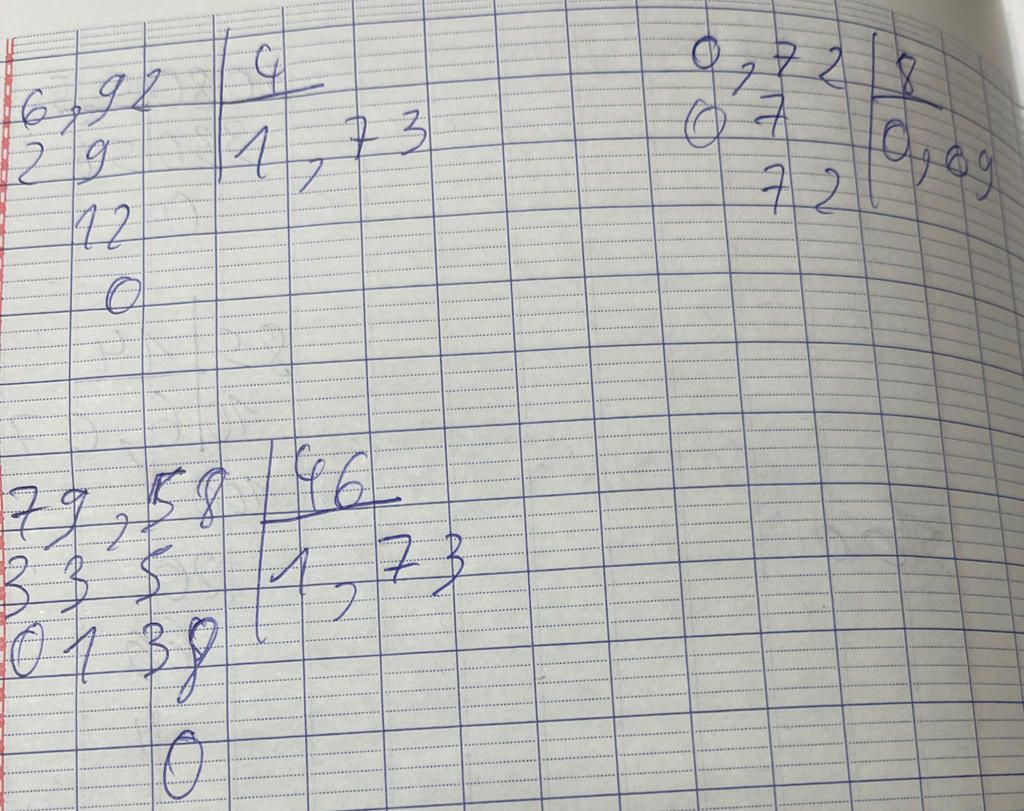 6,92 4
29 1,73
12
0
0,72 8
07 0,09
72
79,58 46
335 1,73
0138
0